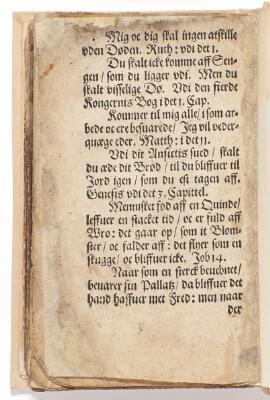 Mig oc dig skal ingen atskille
vden Døden. Ruth: vdi det 1.
Du skalt icke komme aff Sen-
gen / som du ligger vdi. Men du
skalt visselige Dø. Vdi den fierde
Kongernis Bog i det 1. Cap.
Kommer til mig alle / i som ar-
bede oc ere besuarede / Jeg vil veder-
quæge eder. Matth: i det 11.
Vdi dit Ansictis sued / skalt
du æde dit Brød / til du bliffuer til
Jord igen / som du est tagen aff.
Genesis vdi det 3. Capittel.
Mennisket fød aff en Quinde /
leffuer en stacket tid / oc er fuld aff
Wro: det gaar op / som it Blom-
ster / oc falder aff: det flyer som en
skugge / oc bliffuer icke. Job 14.
Naar som en sterck beuebnet /
beuarer sin Pallatz / da bliffuer det
hand haffuer met Fred: men naar
der